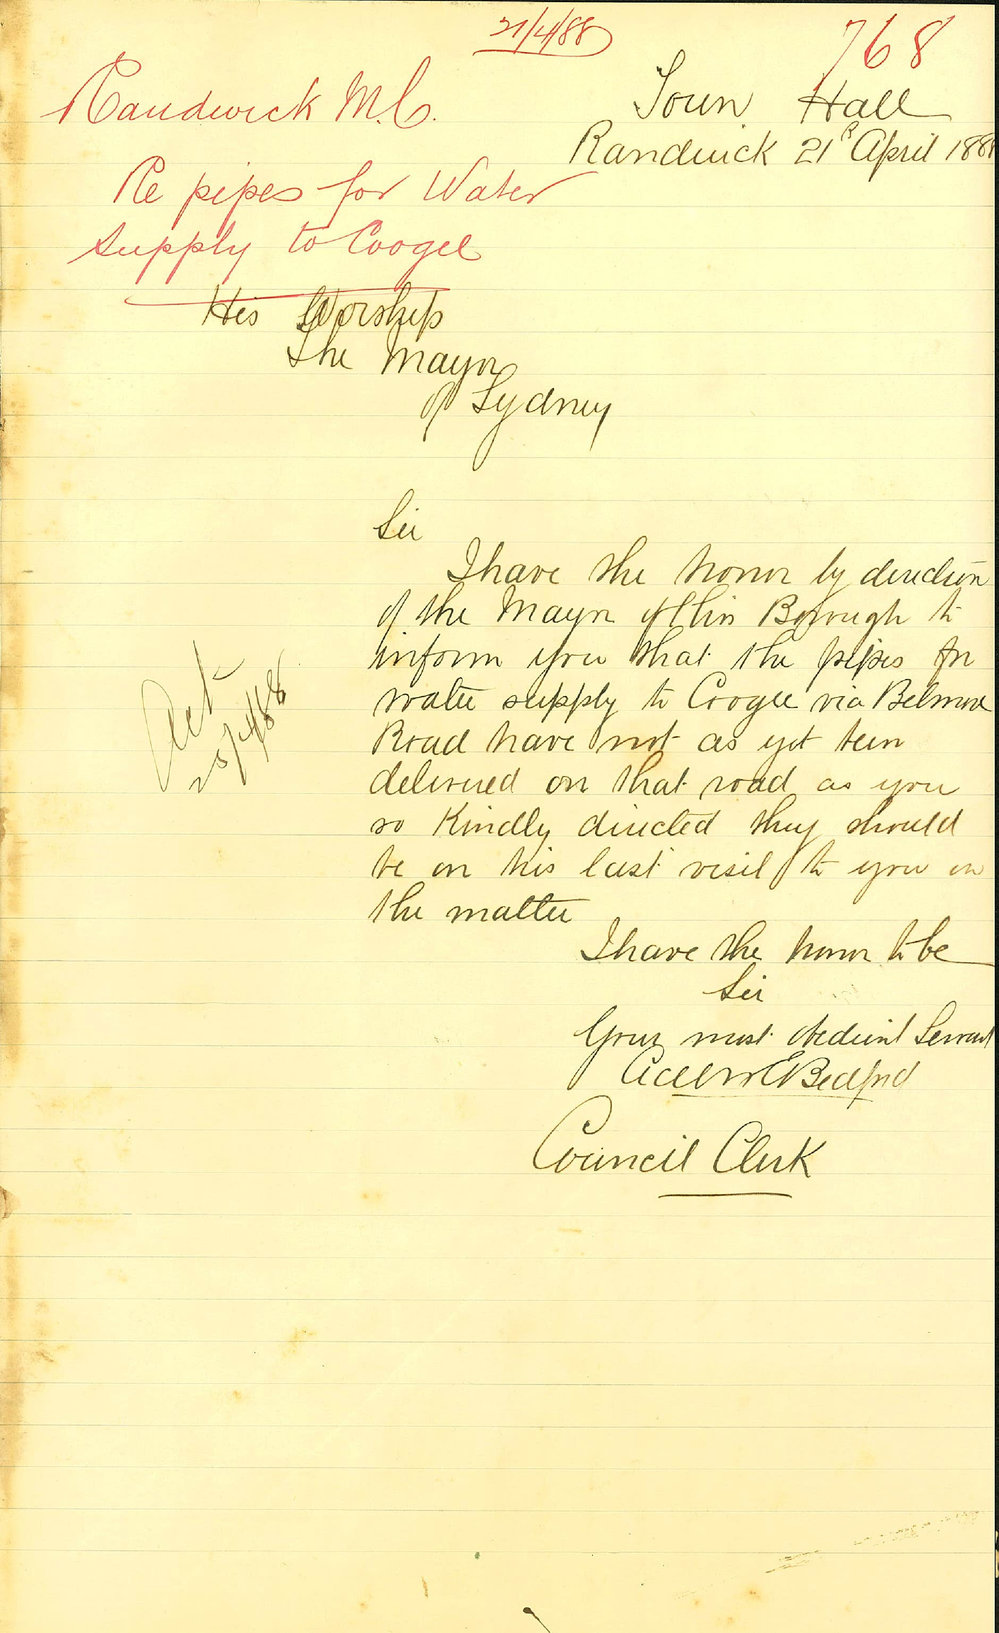 21/4/88
768
Randwick M.C.
Re pipes for Water
supply to Coogee
Town Hall
Randwick 21st April 1888
His Worship
The Mayor
of Sydney
Sir
I have the honor by direction
of the Mayor of this Borough to
inform you that the pipes for
water supply to Coogee via Belmore
Road have not as yet been
delivered on that road as you
so kindly directed they should
be on his last visit to you on
the matter
I have the honor to be
Sir
Your most obedient Servant
Bedford
Council Clerk
Ack
25/4/88